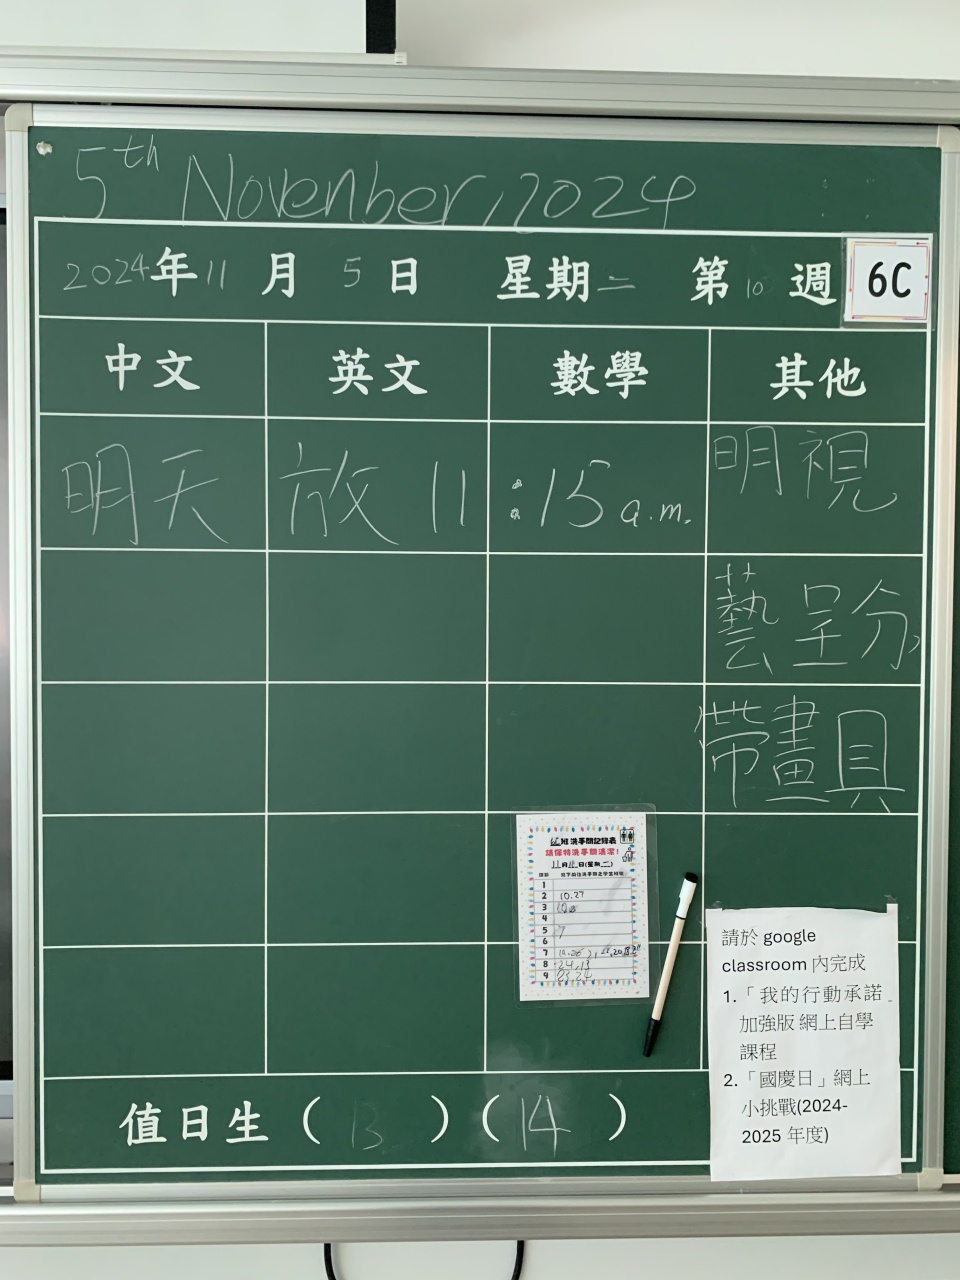 5th Novenber, 2024
2024年11月5日 星期二 第10週 6C
中文 英文 數學 其他
明天 放 11:15 a.m. 明視
藝呈分
帶畫具
班洗手間記錄表
請保持洗手間清潔!
1
2 10.27
3
4
5 7
6
7
8 24,13
9 23,24
請於 google
classroom 內完成
1.「我的行動承諾
加強版 網上自學
課程
2.「國慶日」網上
小挑戰(2024-
2025 年度)
值日生(13)(14)